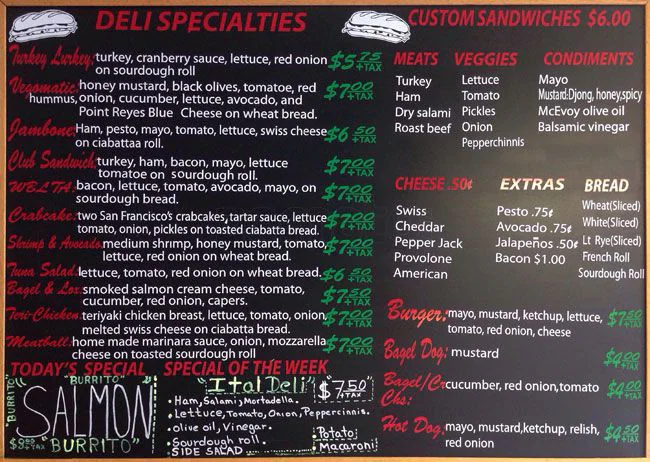 DELI SPECIALTIES
Turkey Lurkey: turkey, cranberry sauce, lettuce, red onion $5 75 +TAX
on sourdough roll
Vegomatic: honey mustard, black olives, tomatoe, red $7.00 +TAX
hummus, onion, cucumber, lettuce, avocado, and
Point Reyes Blue Cheese on wheat bread.
Jambone: Ham, pesto, mayo, tomato, lettuce, swiss cheese $6 50 +TAX
on ciabattaa roll.
Club Sandwich: turkey, ham, bacon, mayo, lettuce $7.00 +TAX
tomatoe on sourdough roll.
W.B.L.T.A: bacon, lettuce, tomato, avocado, mayo, on $7.00 +TAX
sourdough bread.
Crabcake: two San Francisco's crabcakes, tartar sauce, lettuce $7.00 +TAX
tomato, onion, pickles on toasted ciabatta bread.
Shrimp & Avocado: medium shrimp, honey mustard, tomato, $7.00 +TAX
lettuce, red onion on wheat bread.
Tuna Salad: lettuce, tomato, red onion on wheat bread. $6 50 +TAX
Bagel & Lox: smoked salmon cream cheese, tomato, $7.50 +TAX
cucumber, red onion, capers.
Teri-Chicken: teriyaki chicken breast, lettuce, tomato, onion, $7.00 +TAX
melted swiss cheese on ciabatta bread.
Meatball: home made marinara sauce, onion, mozzarella $7.00 +TAX
cheese on toasted sourdough roll
TODAY'S SPECIAL
"BURRITO"
"BURRITO"
SALMON
+TAX "BURRITO"
SPECIAL OF THE WEEK
"Ital Deli" $7.50 +TAX
. Ham, Salami, Mortadella.
. Lettuce, Tomato, Onion, Peppercinnis.
. olive oil, Vinegar.
. Sourdough roll.
SIDE SALAD
.Potato
.Macaroni
CUSTOM SANDWICHES $6.00
MEATS VEGGIES CONDIMENTS
Turkey Lettuce Mayo
Ham Tomato Mustard:Djong, honey,spicy
Dry salami Pickles McEvoy olive oil
Roast beef Onion Balsamic vinegar
Pepperchinnis
CHEESE .50¢ EXTRAS BREAD
Swiss Pesto .75¢ Wheat(Sliced)
Cheddar Avocado .75¢ White(Sliced)
Pepper Jack Jalapeños .50¢ Lt Rye(Sliced)
Provolone Bacon $1.00 French Roll
American Sourdough Roll
Burger: mayo, mustard, ketchup, lettuce, $7.50 +TAX
tomato, red onion, cheese
Bagel Dog: mustard $4.00 +TAX
Bagel/Cr cucumber, red onion,tomato $4.00 +TAX
Chs:
Hot Dog: mayo, mustard,ketchup, relish, $4.50 +TAX
red onion